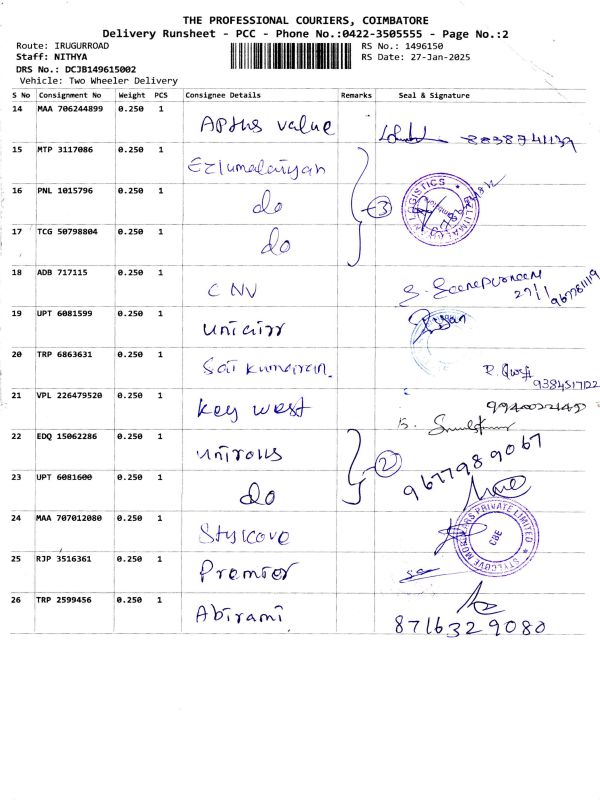 THE PROFESSIONAL COURIERS, COIMBATORE
Delivery Runsheet - PCC - Phone No.:0422-3505555 - Page No.:2
Route: IRUGURROAD RS No.: 1496150
Staff: NITHYA RS Date: 27-Jan-2025
DRS No.: DCJB149615002
Vehicle: Two Wheeler Delivery
S No Consignment No Weight PCS Consignee Details Remarks Seal & Signature
14 MAA 706244899 0.250 1 value 8038741139
15 MTP 3117086 0.250 1 Ezhumalaiyan
16 PNL 1015796 0.250 1 do 3 LOGISTICS
17 TCG 50798804 0.250 1 do
18 ADB 717115 0.250 1 CNV 27/1
19 UPT 6081599 0.250 1
20 TRP 6863631 0.250 1 Sai Kumaran 9384517122
21 VPL 226479520 0.250 1 Key west
22 EDQ 15062286 0.250 1 unirolls 2 9677989067
23 UPT 6081600 0.250 1 do
24 MAA 707012080 0.250 1 Stylcove STYLCOVE PRIVATE LIMITED CBE
25 RJP 3516361 0.250 1 Premier
26 TRP 2599456 0.250 1 Abirami 8716329080